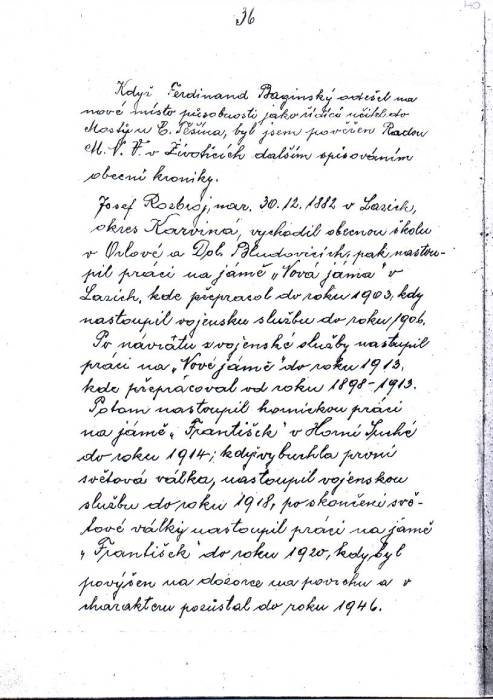 36
40
Když Ferdinand Baginský odešel na
nové místo působnosti jako řídící učitel do
Mostů u Č. Těšína, byl jsem pověřen Radou
M. N. V. v Životicích dalším spisováním
obecní kroniky.
Josef Rozbroj, nar. 30. 12. 1882 v Lazich,
okres Karviná, vychodil obecnou školu
v Orlové a Dol. Bludovicích, pak nastou-
pil práci na jámě „Nová jáma" v
Lazich, kde přepracol do roku 1903, kdy
nastoupil vojensku službu do roku 1906.
Po návrátu z vojenské služby nastoupil
práci na „Nové jámě" do roku 1913,
kde přepracoval od roku 1898-1913.
Potom nastoupil hornickou práci
na jámě „František" v Horní Suché
do roku 1914; když vybuchla první
světová válka, nastoupil vojenskou
službu do roku 1918, po skončení svě-
tové války nastoupil práci na jámě
„František" do roku 1920, kdy byl
povýšen na dozorce na povrchu a v
charakteru pozůstal do roku 1946.